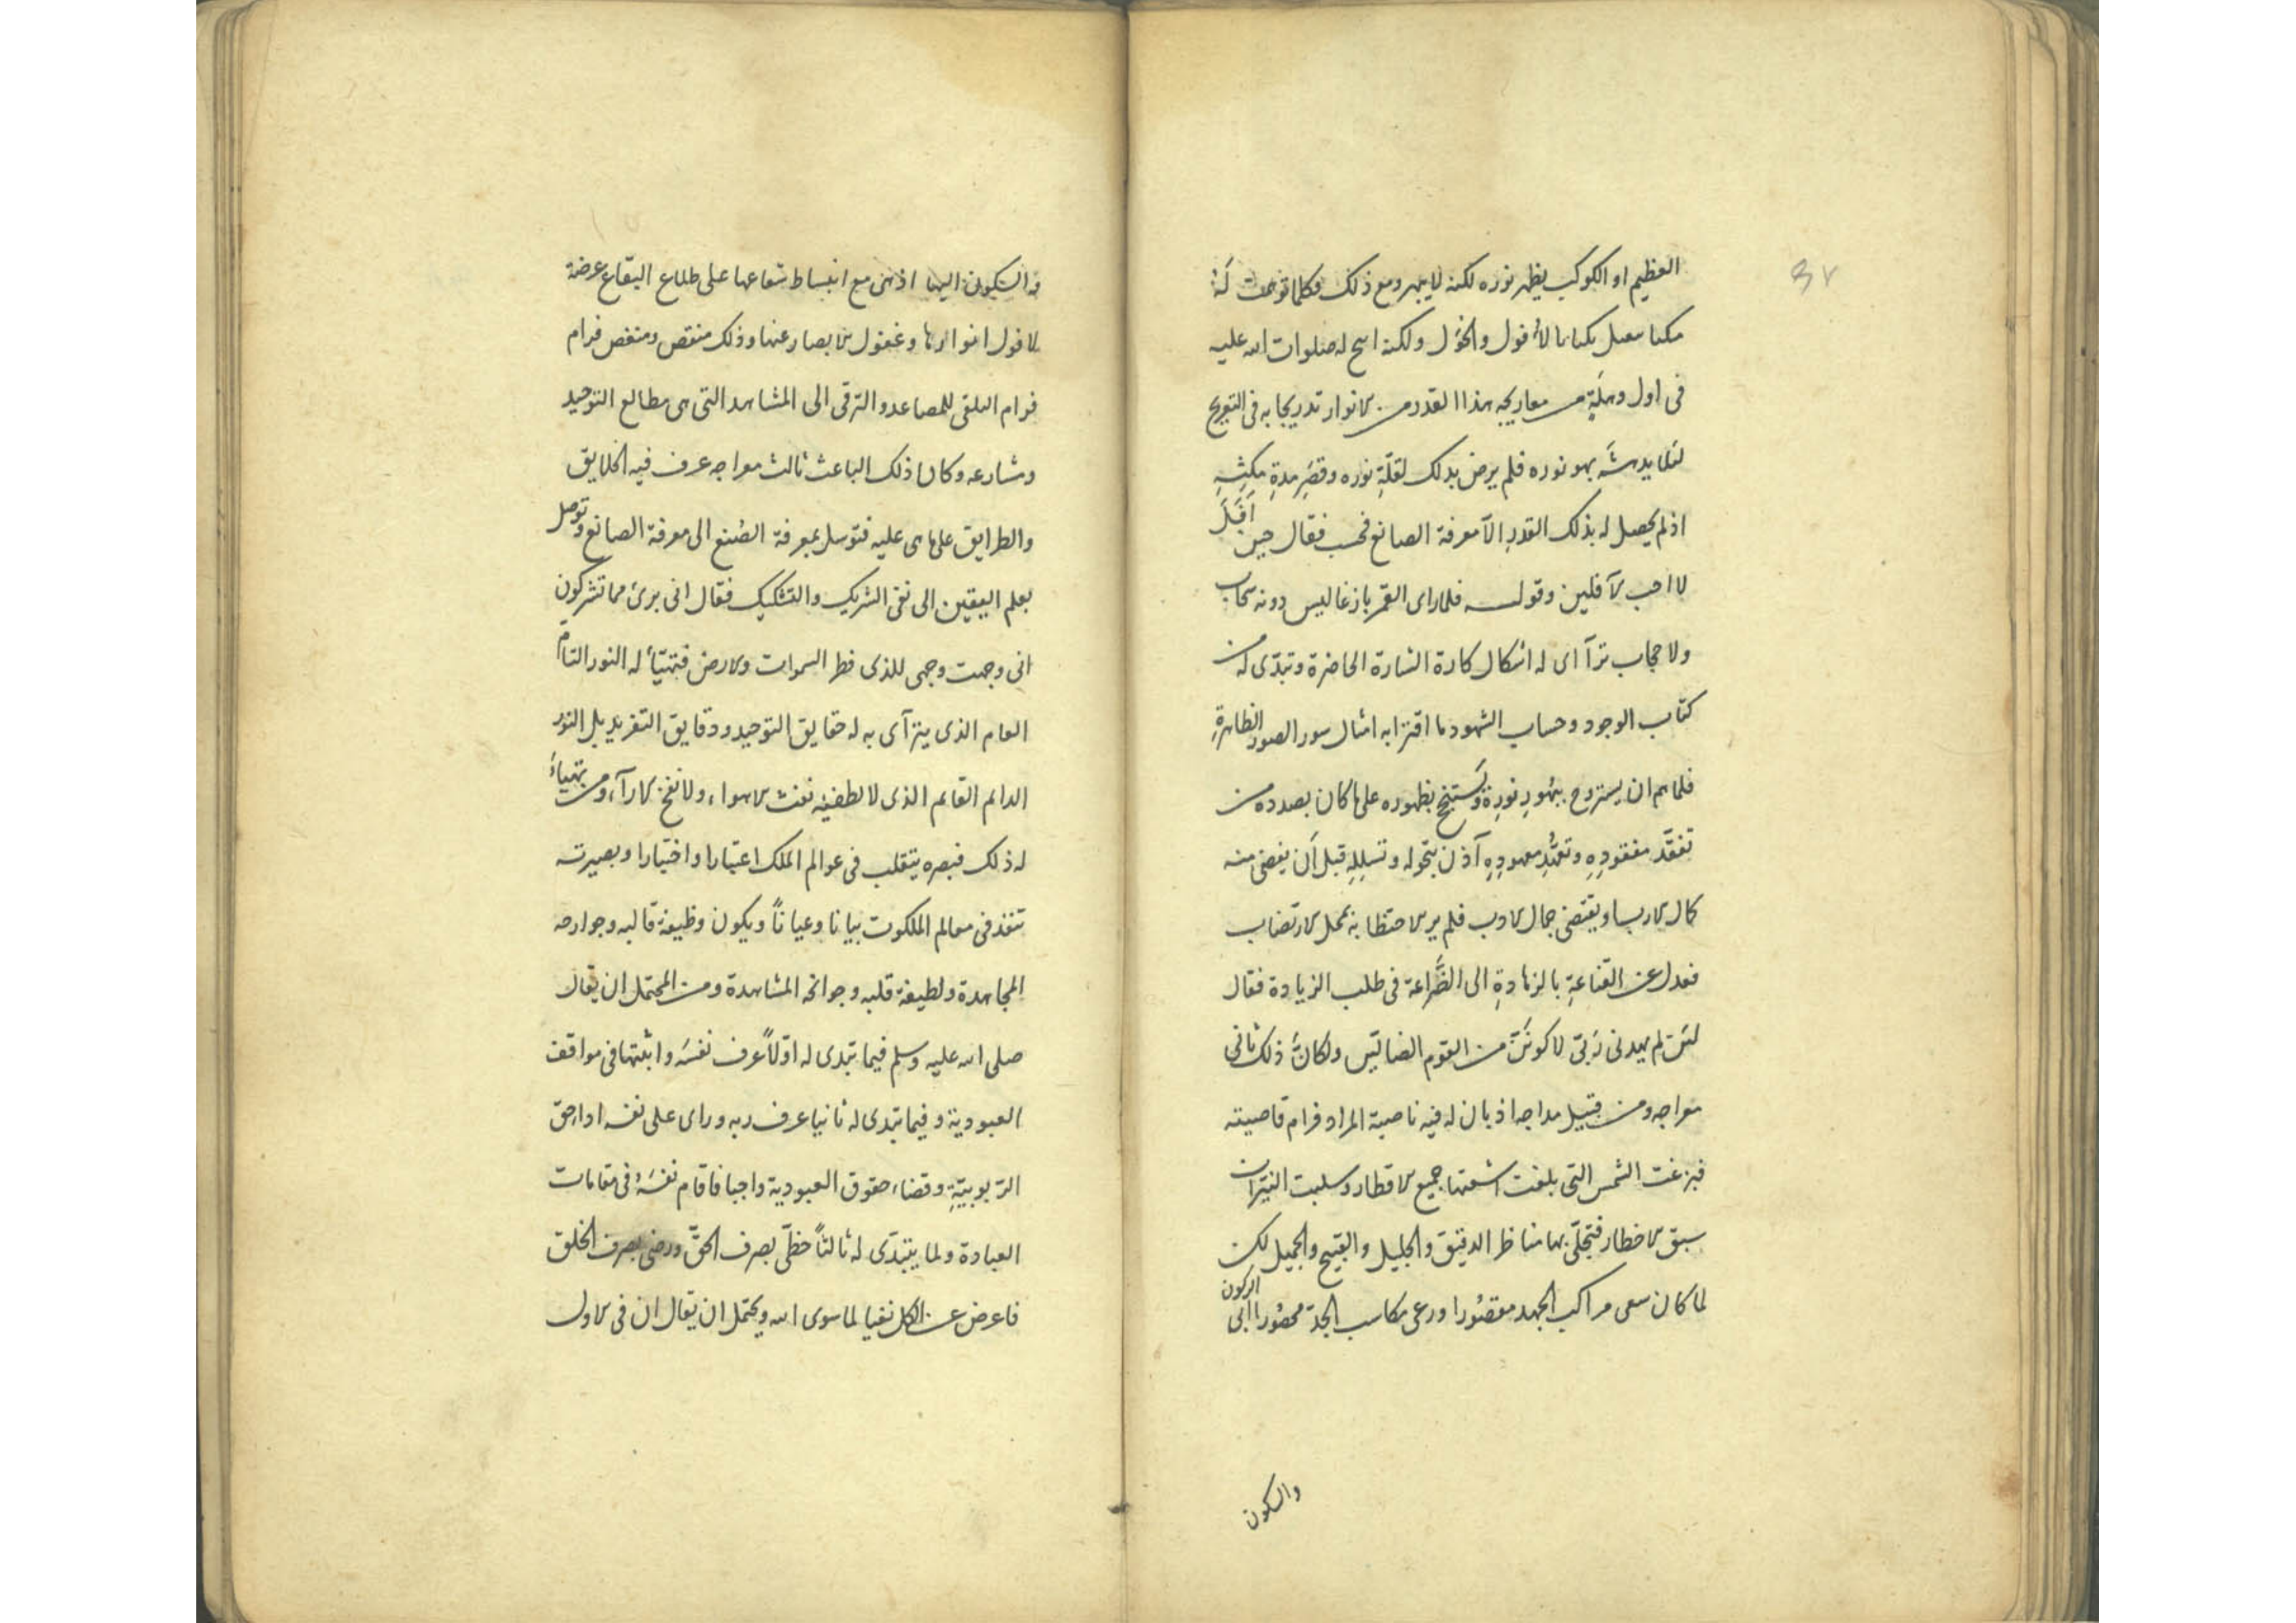 ٣٧
العظيم او الكوكب يظهر نوره لكنه لا يبهر ومع ذلك فكلما توجهت له
بالأفول والتحول ولكنه اتيح له صلوات الله عليه
فى اول وهلةٍ من معاريجه بهذا القدر من الانوار تدريجا به فى التعريج
لئلا يدهشَه بهو نوره فلم يرض بذلك لقلّةِ نوره وقصَرِ مدةِ مكثِهِ
اذ لم يحصل له بذلك القدرِ الّا معرفة الصانع فحسب فقال حين اَفَلَ
لا احب الآفلين وقوله فلما راى القمر بازغا ليس دونه سحاب
ولا حجاب تراآى له اشكال كادة الشارة الحاضرة وتبدّى له من
كتاب الوجود وحساب الشهود ما اقترا به امثال سور الصور الظاهرةِ
فلما هم ان يستروح ببهُورِ نورِهِ ويَستنجح بظهوره على ما كان بصدده من
تفقّد مفقودِهِ وتعهُّدِ معهودِهِ آذن بتحوله وتسللِهِ قبل اَن يفضى منه
كمال الارب او يقتضى جمال الادب فلم ير الاحتظا به محل الارتضاب
فعدل عن القناعةِ بالزهادةِ الى الضَّراعة فى طلب الزيادة فقال
لئن لم يهدنى رَبّى لاكونَنَّ من القوم الضالّين ولكانَ ذلك ثانى
معراجه ومن قبيل مداجه اذ بان له فيه ناصية المراد فرام قاصيته
فبزغت الشمس التى بلغت اشعتها جميع الاقطار وسلبت النيّران
سبق الاخطار فتجلّى بها مناظر الدقيق والجليل والقبيح والجميل لكن
لما كان سعى مراكب الجهد مقصُورا ورعى مكاسب الجدّ محصُورا ابى الركون
والسكون
والسكون اليها اذ هى مع انبساط شعاعها على طلاع البقاع عرضة
لافول انوارها وغفول الابصار عنها وذلك منقص ومنغص فرام
فرام التلقى للمصاعد والترقى الى المشاهد التى هى مطالع التوحيد
ومشارعه وكان ذلك الباعث ثالث معراجه عرف فيه الخلايق
والطرايق على ما هى عليه فتوسل بمعرفة الصُنع الى معرفة الصانع وتوصل
بعلم اليقين الى نفى الشريك والتشكيك فقال انى برئ مما تشركون
انى وجهت وجهى للذى فطر السموات والارض فتهيّأ له النور التامّ
العام الذى يتراآى به له حقايق التوحيد ودقايق التفريد بل النور
الدايم القايم الذى لا يطفئه نفث الاهواء ولا نفخ الاراء ومن تهيأ
له ذلك فبصره يتقلب فى عوالم الملك اعتبارا واختيارا وبصيرته
تنفذ فى معالم الملكوت بيانا وعياناً ويكون وظيفة قالبه وجوارحه
المجاهدة ولطيفة قلبه وجوانحه المشاهدة ومن المحتمل ان يقال
صلى الله عليه وسلم فيما تبدى له اوّلاً عرف نفسَه واثبتها فى مواقف
العبودية وفيما تبدى له ثانيا عرف ربه وراى على نفسه ادا حق
الرّبوبيّةِ وقضاء حقوق العبودية واجبا فاقام نفسَهُ فى مقامات
العبادة ولما يتبدّى له ثالثاً حظى بصرف الحقّ ورضى بصرف الخلق
فاعرض عن الكل نفيا لما سوى الله ويحتمل ان يقال ان فى الاول